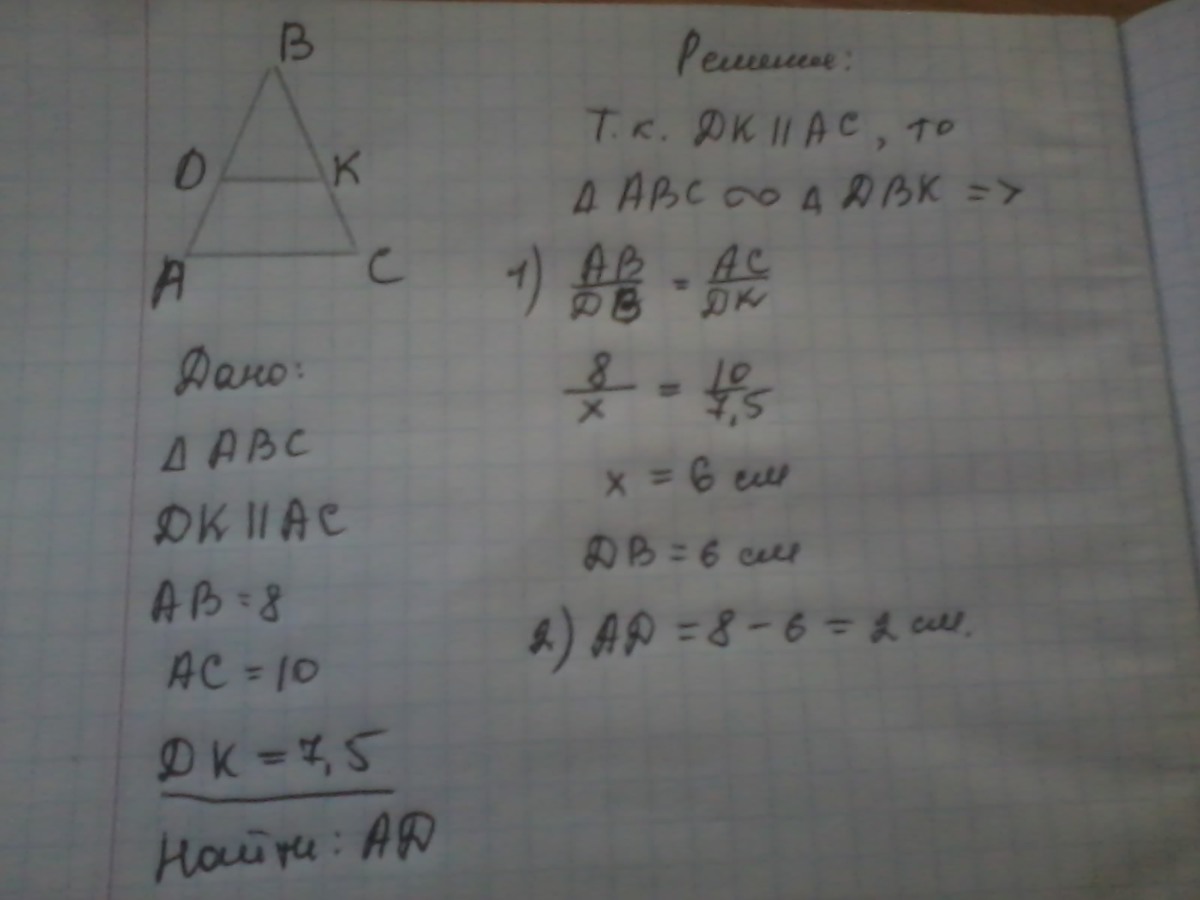 B
D K
A C
Дано:
Δ ABC
DK || AC
AB = 8
AC = 10
DK = 7,5
Найти: AD
Решение:
Т.к. DK || AC, то
Δ ABC ∾ Δ DBK =>
1) AB/DB = AC/DK
8/x = 10/7,5
x = 6 см
DB = 6 см
2) AD = 8 - 6 = 2 см.